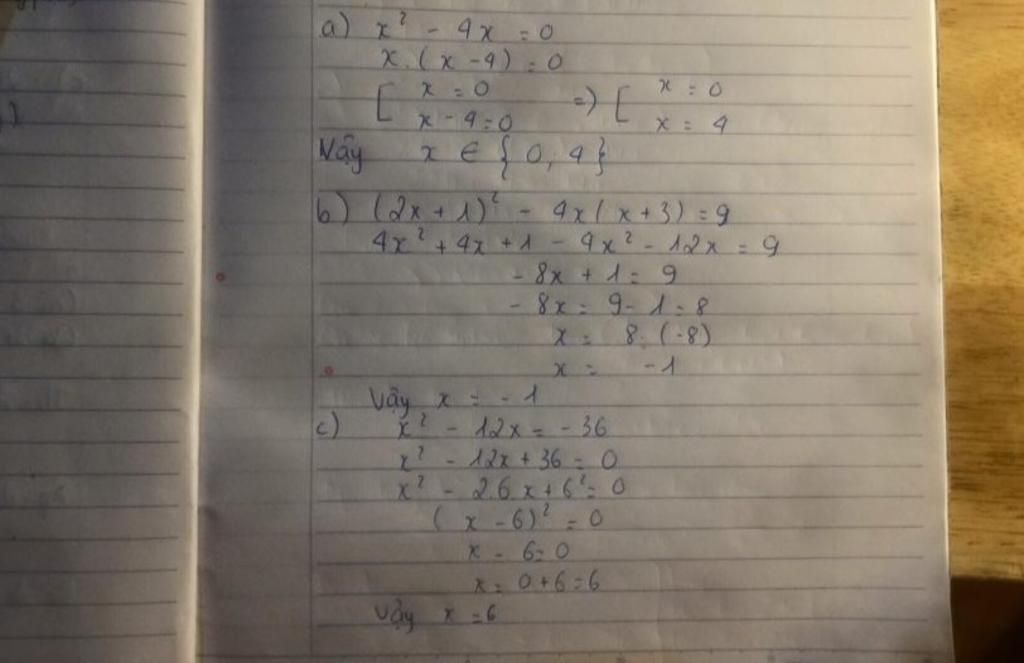 a) x² - 4x = 0
x.(x - 4) = 0
[ x = 0 => [ x = 0
x - 4 = 0 x = 4
Vậy x ∈ { 0, 4 }
b) (2x + 1)² - 4x(x + 3) = 9
4x² + 4x + 1 - 4x² - 12x = 9
- 8x + 1 = 9
- 8x = 9 - 1 = 8
x = 8 : (-8)
x = -1
Vậy x = - 1
c) x² - 12x = - 36
x² - 12x + 36 = 0
x² - 2.6.x + 6² = 0
(x - 6)² = 0
x - 6 = 0
x = 0 + 6 = 6
Vậy x = 6